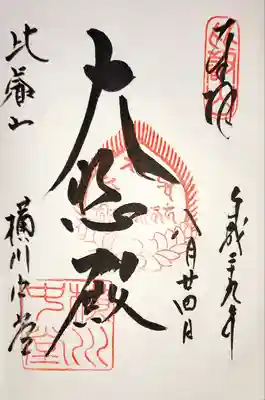 奉拝
平成二十九年
八月廿四日
大悲殿
比叡山
横川中堂
横川
中堂